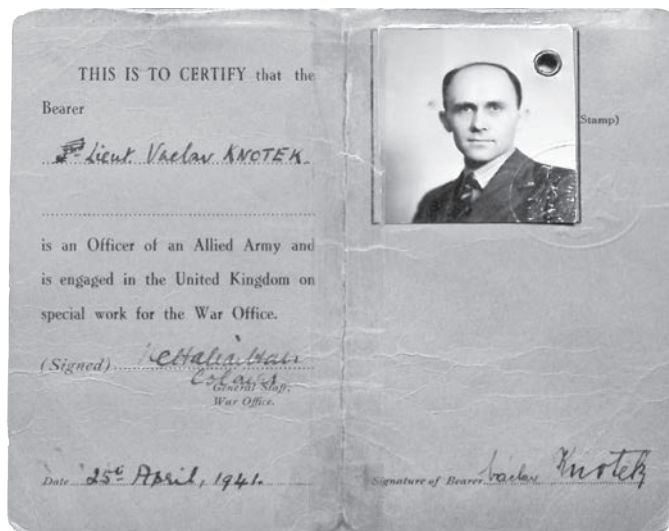 THIS IS TO CERTIFY that the
Bearer
Lieut. Vaclav KNOTEK.
is an Officer of an Allied Army and
is engaged in the United Kingdom on
special work for the War Office.
(Signed)
General Staff,
War Office.
Date 25th April, 1941.
Stamp)
Signature of Bearer Václav Knotek